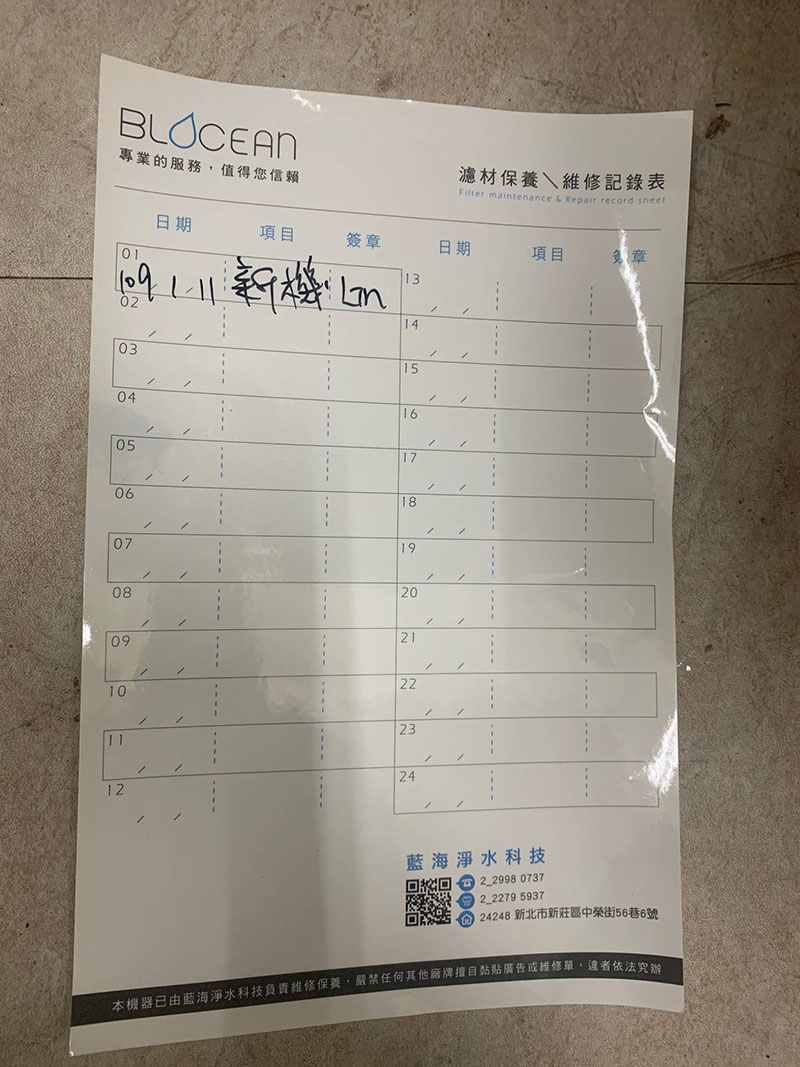 BLOCEAN
專業的服務，值得您信賴
濾材保養＼維修記錄表
Filter maintenance & Repair record sheet
日期 項目 簽章 日期 項目 簽章
01 109 / 1 / 11 新機 Lin
02 / /
03 / /
04 / /
05 / /
06 / /
07 / /
08 / /
09 / /
10 / /
11 / /
12 / /
13 / /
14 / /
15 / /
16 / /
17 / /
18 / /
19 / /
20 / /
21 / /
22 / /
23 / /
24 / /
藍海淨水科技
2_2998 0737
2_2279 5937
24248 新北市新莊區中榮街56巷6號
本機器已由藍海淨水科技負責維修保養，嚴禁任何其他廠牌擅自黏貼廣告或維修單，違者依法究辦